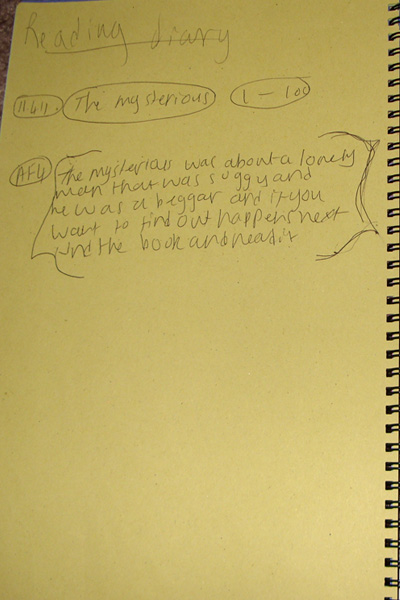 Reading diary
11.6.11 The mysterious 1-100
AF4 The mysterious was about a lonely
man that was soggy and
he was a beggar and if you
want to find out happens next
find the book and read it